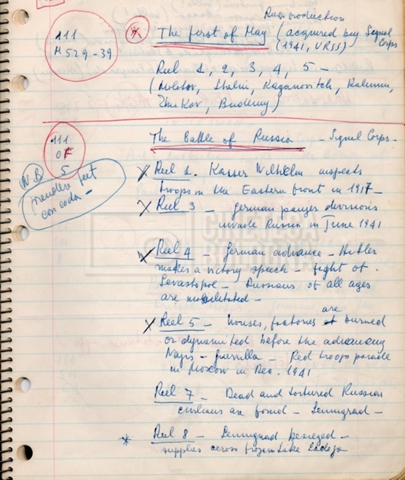 Russ. production
111
M 529-39
The first of May (acquired by Signal Corps
(1941, URSS)
Reel 1, 2, 3, 4, 5 -
(Molotov, Stalin, Kaganovitch, Kalinin,
Zhukov, Budieny)
111
OF
5
The Battle of Russia - Signal Corps -
N.B
prendere
con coda -
x Reel 1. Kaiser Wilhelm inspects
troops on the Eastern front in 1917 -
x Reel 3 - german panzer divisions
invade Russia in June 1941
x Reel 4 - German advance - Hitler
makes a victory speech - fight of
Sevastopol - Russians of all ages
are mobilitated -
x Reel 5 - houses, factories are burned
or dynamited before the advancing
Nazis - guerrilla - Red troops parade
in Moscow in Dec. 1941
Reel 7 - Dead and tortured Russian
civilians are found - Leningrad -
* Reel 8 - Leningrad besieged -
supplies across frozen Lake Ladoga